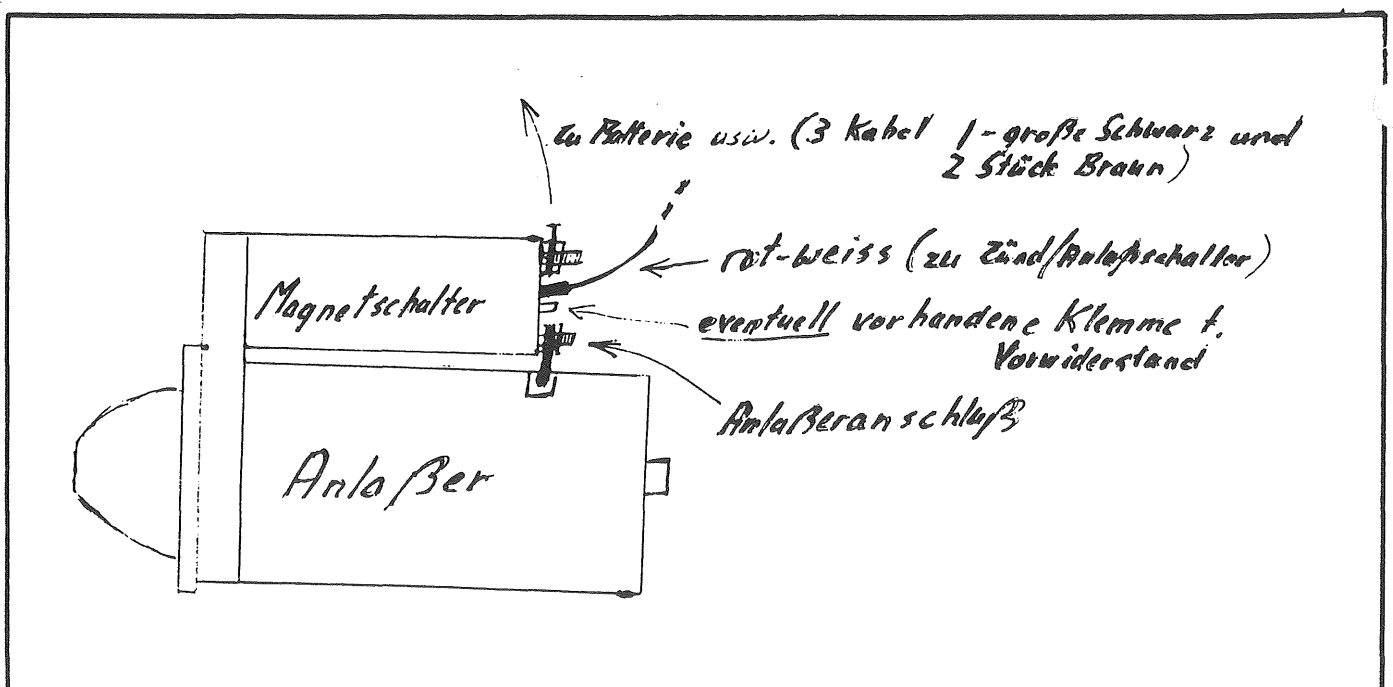 zu Batterie usw. (3 Kabel 1-große Schwarz und
2 Stück Braun)
rot-weiss (zu Zünd/Anlaßschalter)
Magnetschalter
eventuell vorhandene Klemme f.
Vorwiderstand
Anlaßeranschluß
Anlaßer